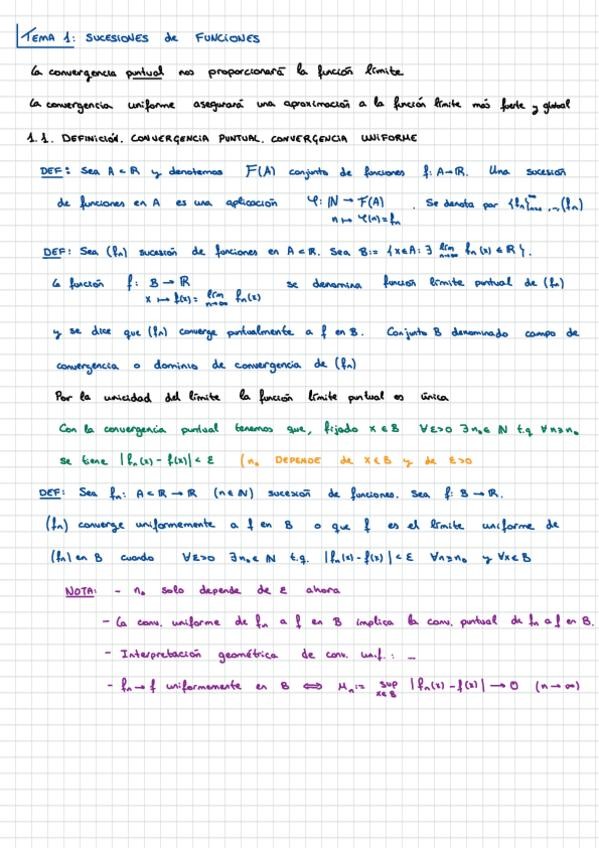 TEMA 1: SUCESIONES de FUNCIONES
La convergencia puntual nos proporcionará la función límite
La convergencia uniforme asegurará una aproximación a la función límite más fuerte y global
1.1. DEFINICIÓN. CONVERGENCIA PUNTUAL. CONVERGENCIA UNIFORME
DEF: Sea A ⊂ ℝ y denotemos F(A) conjunto de funciones f: A→ℝ. Una sucesión
de funciones en A es una aplicación φ: ℕ → F(A) . Se denota por {fₙ}ₙ₌₁^∞ , (fₙ)
n ↦ φ(n) = fₙ
DEF: Sea (fₙ) sucesión de funciones en A⊂ℝ. Sea B:= {x∈A: ∃ lím_{n→∞} fₙ(x) ∈ ℝ}.
La función f: B → ℝ se denomina función límite puntual de (fₙ)
x ↦ f(x) = lím_{n→∞} fₙ(x)
y se dice que (fₙ) converge puntualmente a f en B. Conjunto B denominado campo de
convergencia o dominio de convergencia de (fₙ)
Por la unicidad del límite la función límite puntual es única
Con la convergencia puntual tenemos que, fijado x∈B ∀ε>0 ∃n₀∈ℕ t.q ∀n≥n₀
se tiene |fₙ(x) - f(x)| < ε (n₀ DEPENDE de x∈B y de ε>0
DEF: Sea fₙ: A⊂ℝ → ℝ (n∈ℕ) sucesión de funciones. Sea f: B→ℝ.
(fₙ) converge uniformemente a f en B o que f es el límite uniforme de
(fₙ) en B cuando ∀ε>0 ∃n₀∈ℕ t.q. |fₙ(x) - f(x)| < ε ∀n≥n₀ y ∀x∈B
NOTA: - n₀ solo depende de ε ahora
- La conv. uniforme de fₙ a f en B implica la conv. puntual de fₙ a f en B.
- Interpretación geométrica de conv. unif.: ...
- fₙ → f uniformemente en B ⟺ Mₙ:= sup_{x∈B} |fₙ(x) - f(x)| → 0 (n→∞)